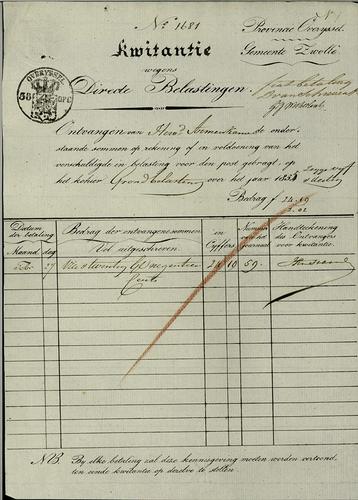 No 1681
Provincie Overyssel
Gemeente Zwolle
Kwitantie
wegens
Directe Belastingen.
OVERYSSEL
Ontvangen van de onder-
staande sommen op rekening of in voldoening van het
verschuldigde in belasting voor den post gebragt, op
het kohier Grondbelasting over het jaar 185
Bedrag f 24.19
Datum der betaling
Maand dag
Bedrag der ontvangene sommen
Vol uitgeschreven.
in Cyffers
Nummer van het journaal
Handteekening des Ontvangers voor kwitantie.
27 Vier en twintig Gl negentien 24 19 59.
Cents
NB. By elke betaling zal deze kennisgeving moeten worden vertoond,
ten einde kwitantie op dezelve te stellen